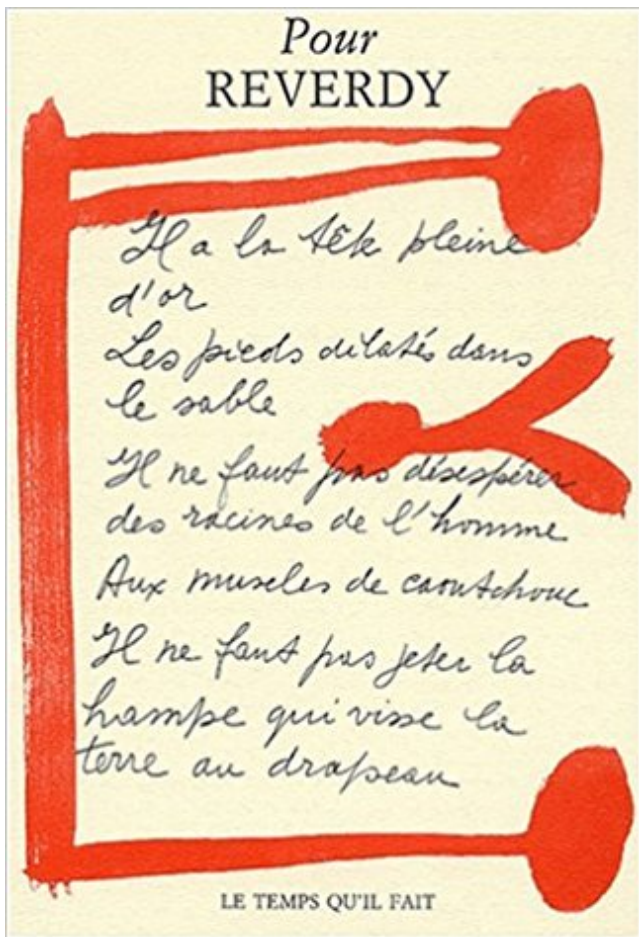 Pour
REVERDY
Il a la tête pleine
d'or
Les pieds dilatés dans
le sable
Il ne faut pas désespérer
des racines de l'homme
Aux muscles de caoutchouc
Il ne faut pas jeter la
hampe qui visse la
terre au drapeau
LE TEMPS QU'IL FAIT